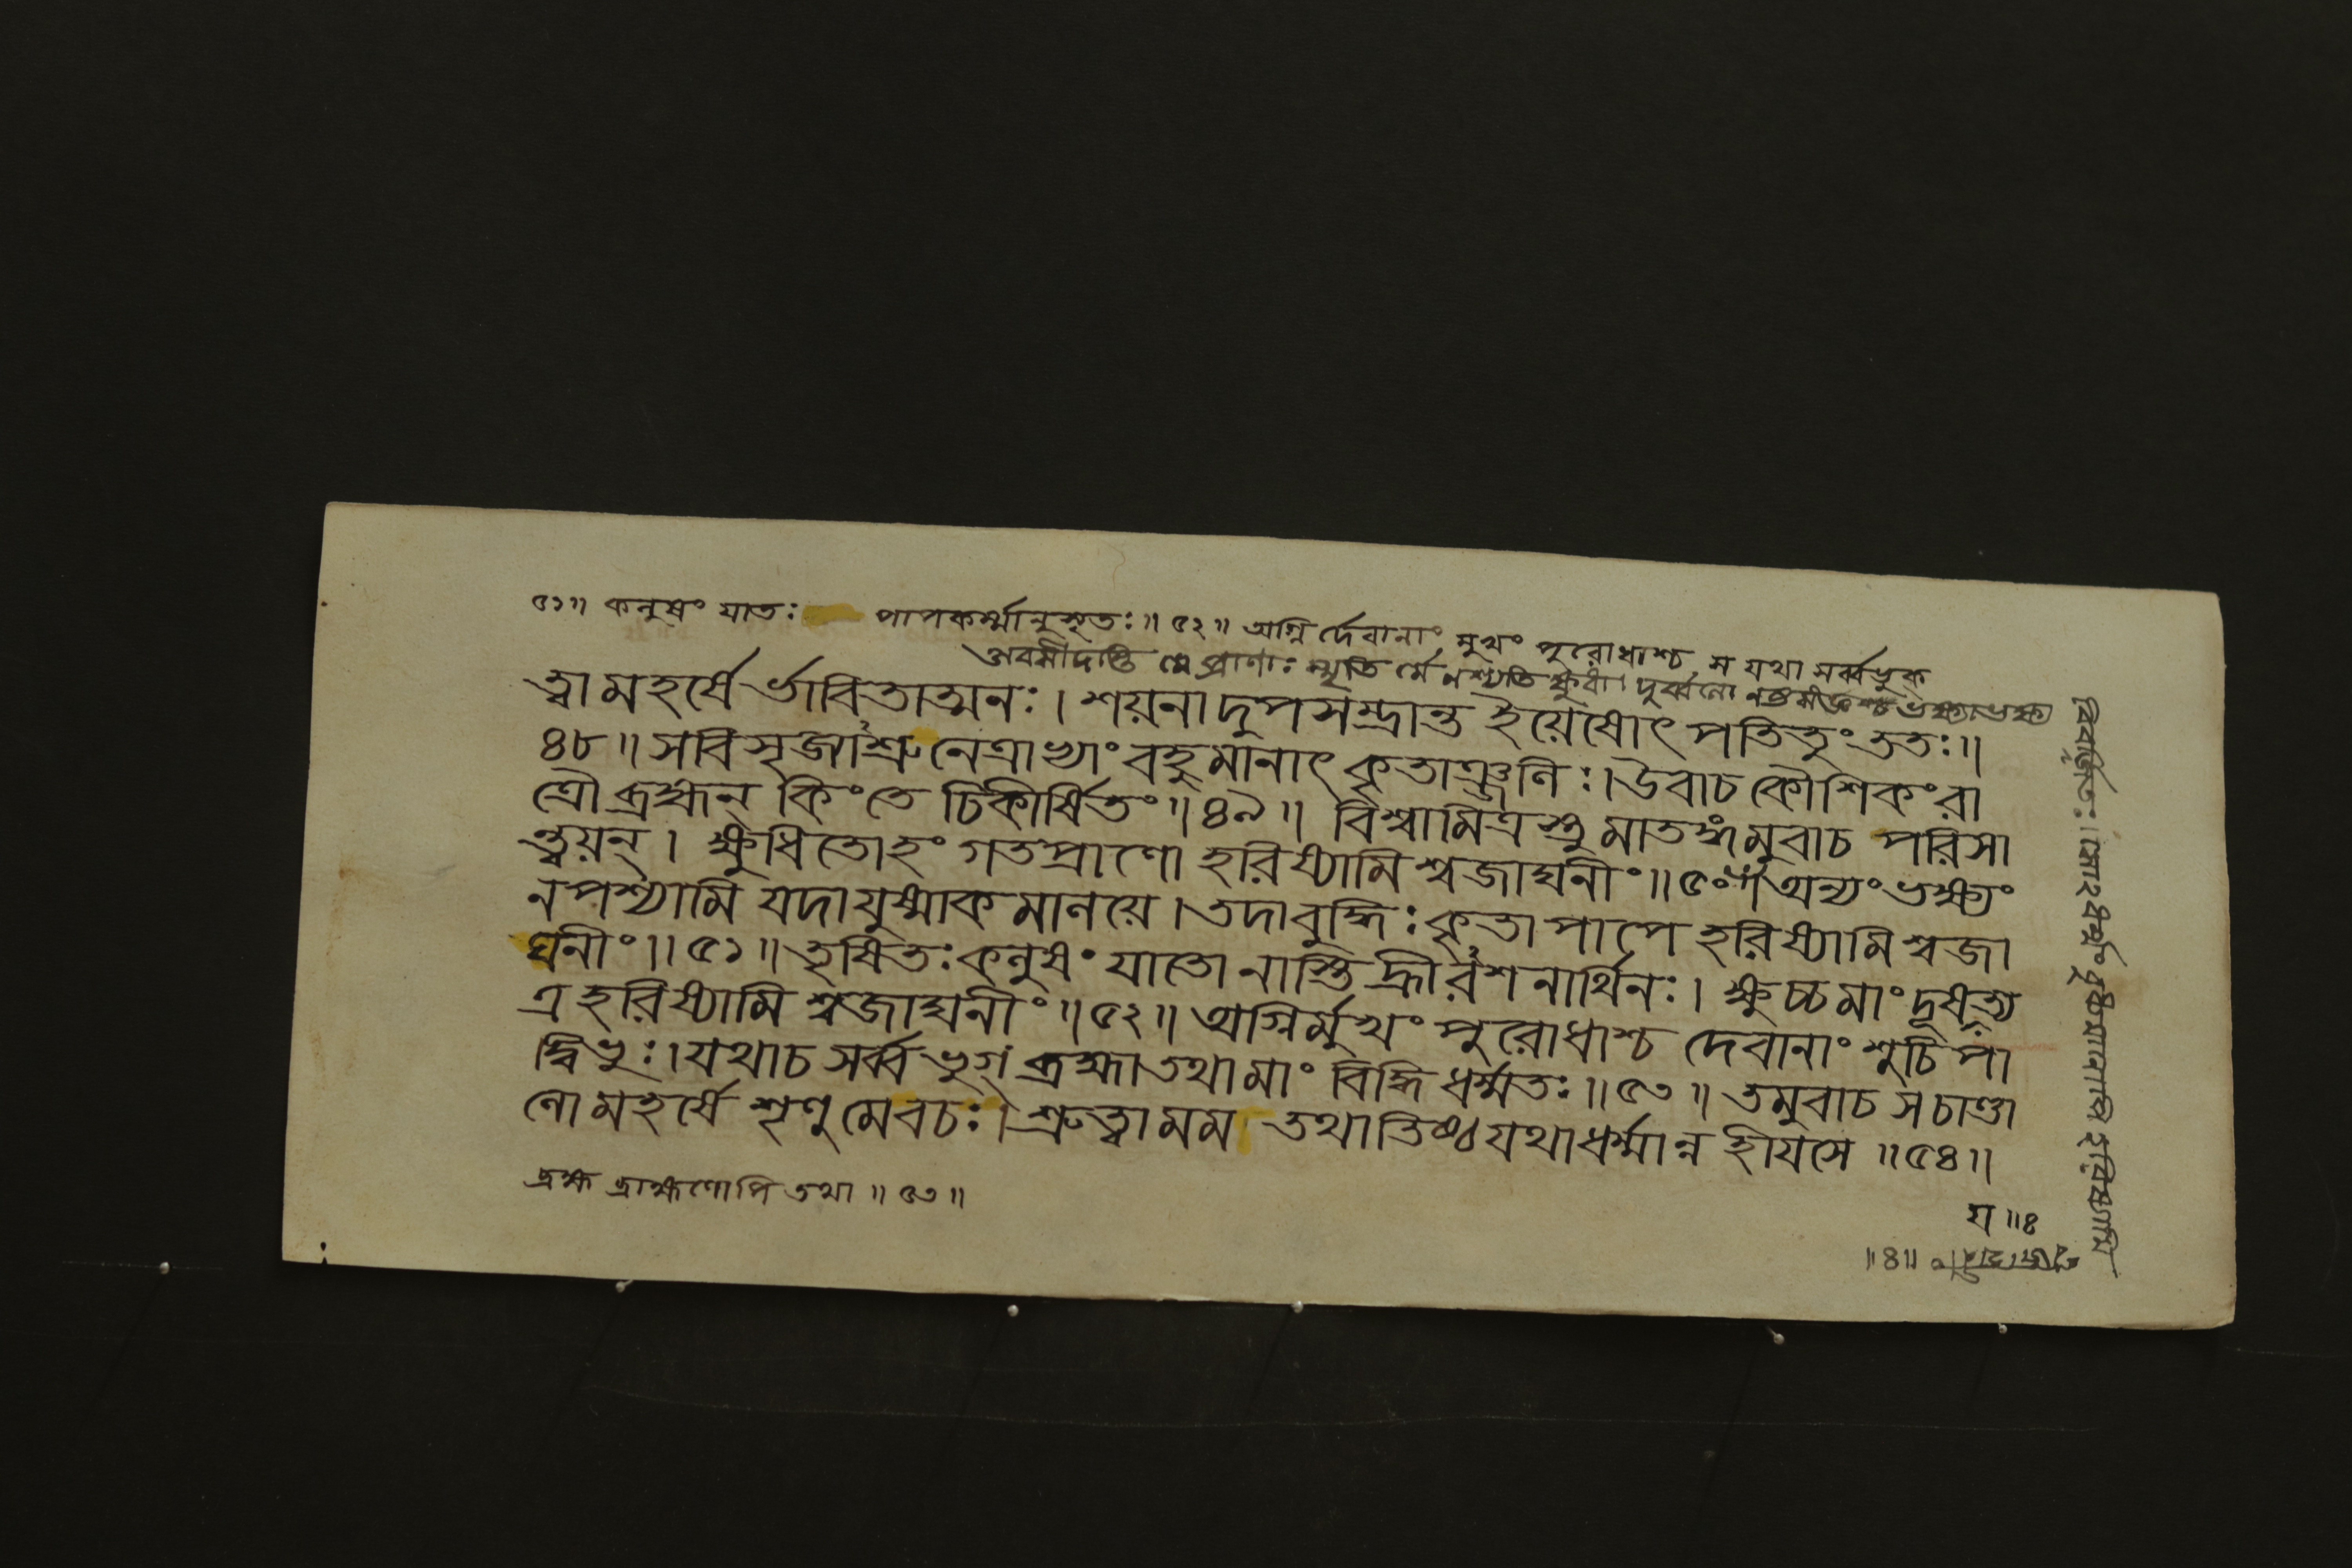 ৫১॥ কলুষং যাতঃ পাপকর্ম্মানুসৃতঃ॥৫২॥ অগ্নির্দেবানাং মুখং পুরোধাশ্চ স যথা সর্ব্বভুক্
অবসীদন্তি মে প্রাণাঃ স্মৃতির্মে নশ্যতি ক্ষুধা। দুর্ব্বলো নষ্টসংজ্ঞশ্চ ভক্ষ্যাভক্ষ্য
ত্বা মহর্ষের্ভাবিতাত্মনঃ। শয়নাদুপসম্ভ্রান্ত ইয়েষোৎপতিতুং ততঃ॥
৪৮॥ স বিসৃজ্যাশ্রুনেত্রাভ্যাং বহুমানাৎ কৃতাঞ্জলিঃ। উবাচ কৌশিকং রা
ত্রৌ ব্রহ্মন্ কিং তে চিকীর্ষিতং॥৪৯॥ বিশ্বামিত্রস্তু মাতঙ্গমুবাচ পরিসা
ন্ত্বয়ন্। ক্ষুধিতোহং গতপ্রাণো হরিষ্যামি শ্বজাঘনীং॥৫০॥ অন্যং ভক্ষ্যং
ন পশ্যামি যদা যুষ্মাকমালয়ে। তদা বুদ্ধিঃ কৃতা পাপে হরিষ্যামি শ্বজা
ঘনীং॥৫১॥ তৃষিতঃ কলুষং যাতো নাস্তি হ্রীরশনার্থিনঃ। ক্ষুচ্চ মাং দূষয়ত্য
ত্র হরিষ্যামি শ্বজাঘনীং॥৫২॥ অগ্নির্মুখং পুরোধাশ্চ দেবানাং শুচিপা
দ্বিভুঃ। যথা চ সর্ব্বভুগ্ ব্রহ্মা তথা মাং বিদ্ধি ধর্ম্মতঃ॥৫৩॥ তমুবাচ স চাণ্ডা
লো মহর্ষে শৃণু মে বচঃ। শ্রুত্বা মম তথাতিষ্ঠ যথা ধর্ম্মান্ন হীয়সে॥৫৪॥
ব্রহ্ম ব্রাহ্মণোপি তথা॥৫৩॥
বিবর্জিতঃ। সোহং ধর্ম্মং বুধ্যমানোপি হরিষ্যামি
শ্বজাঘনীং॥৪॥